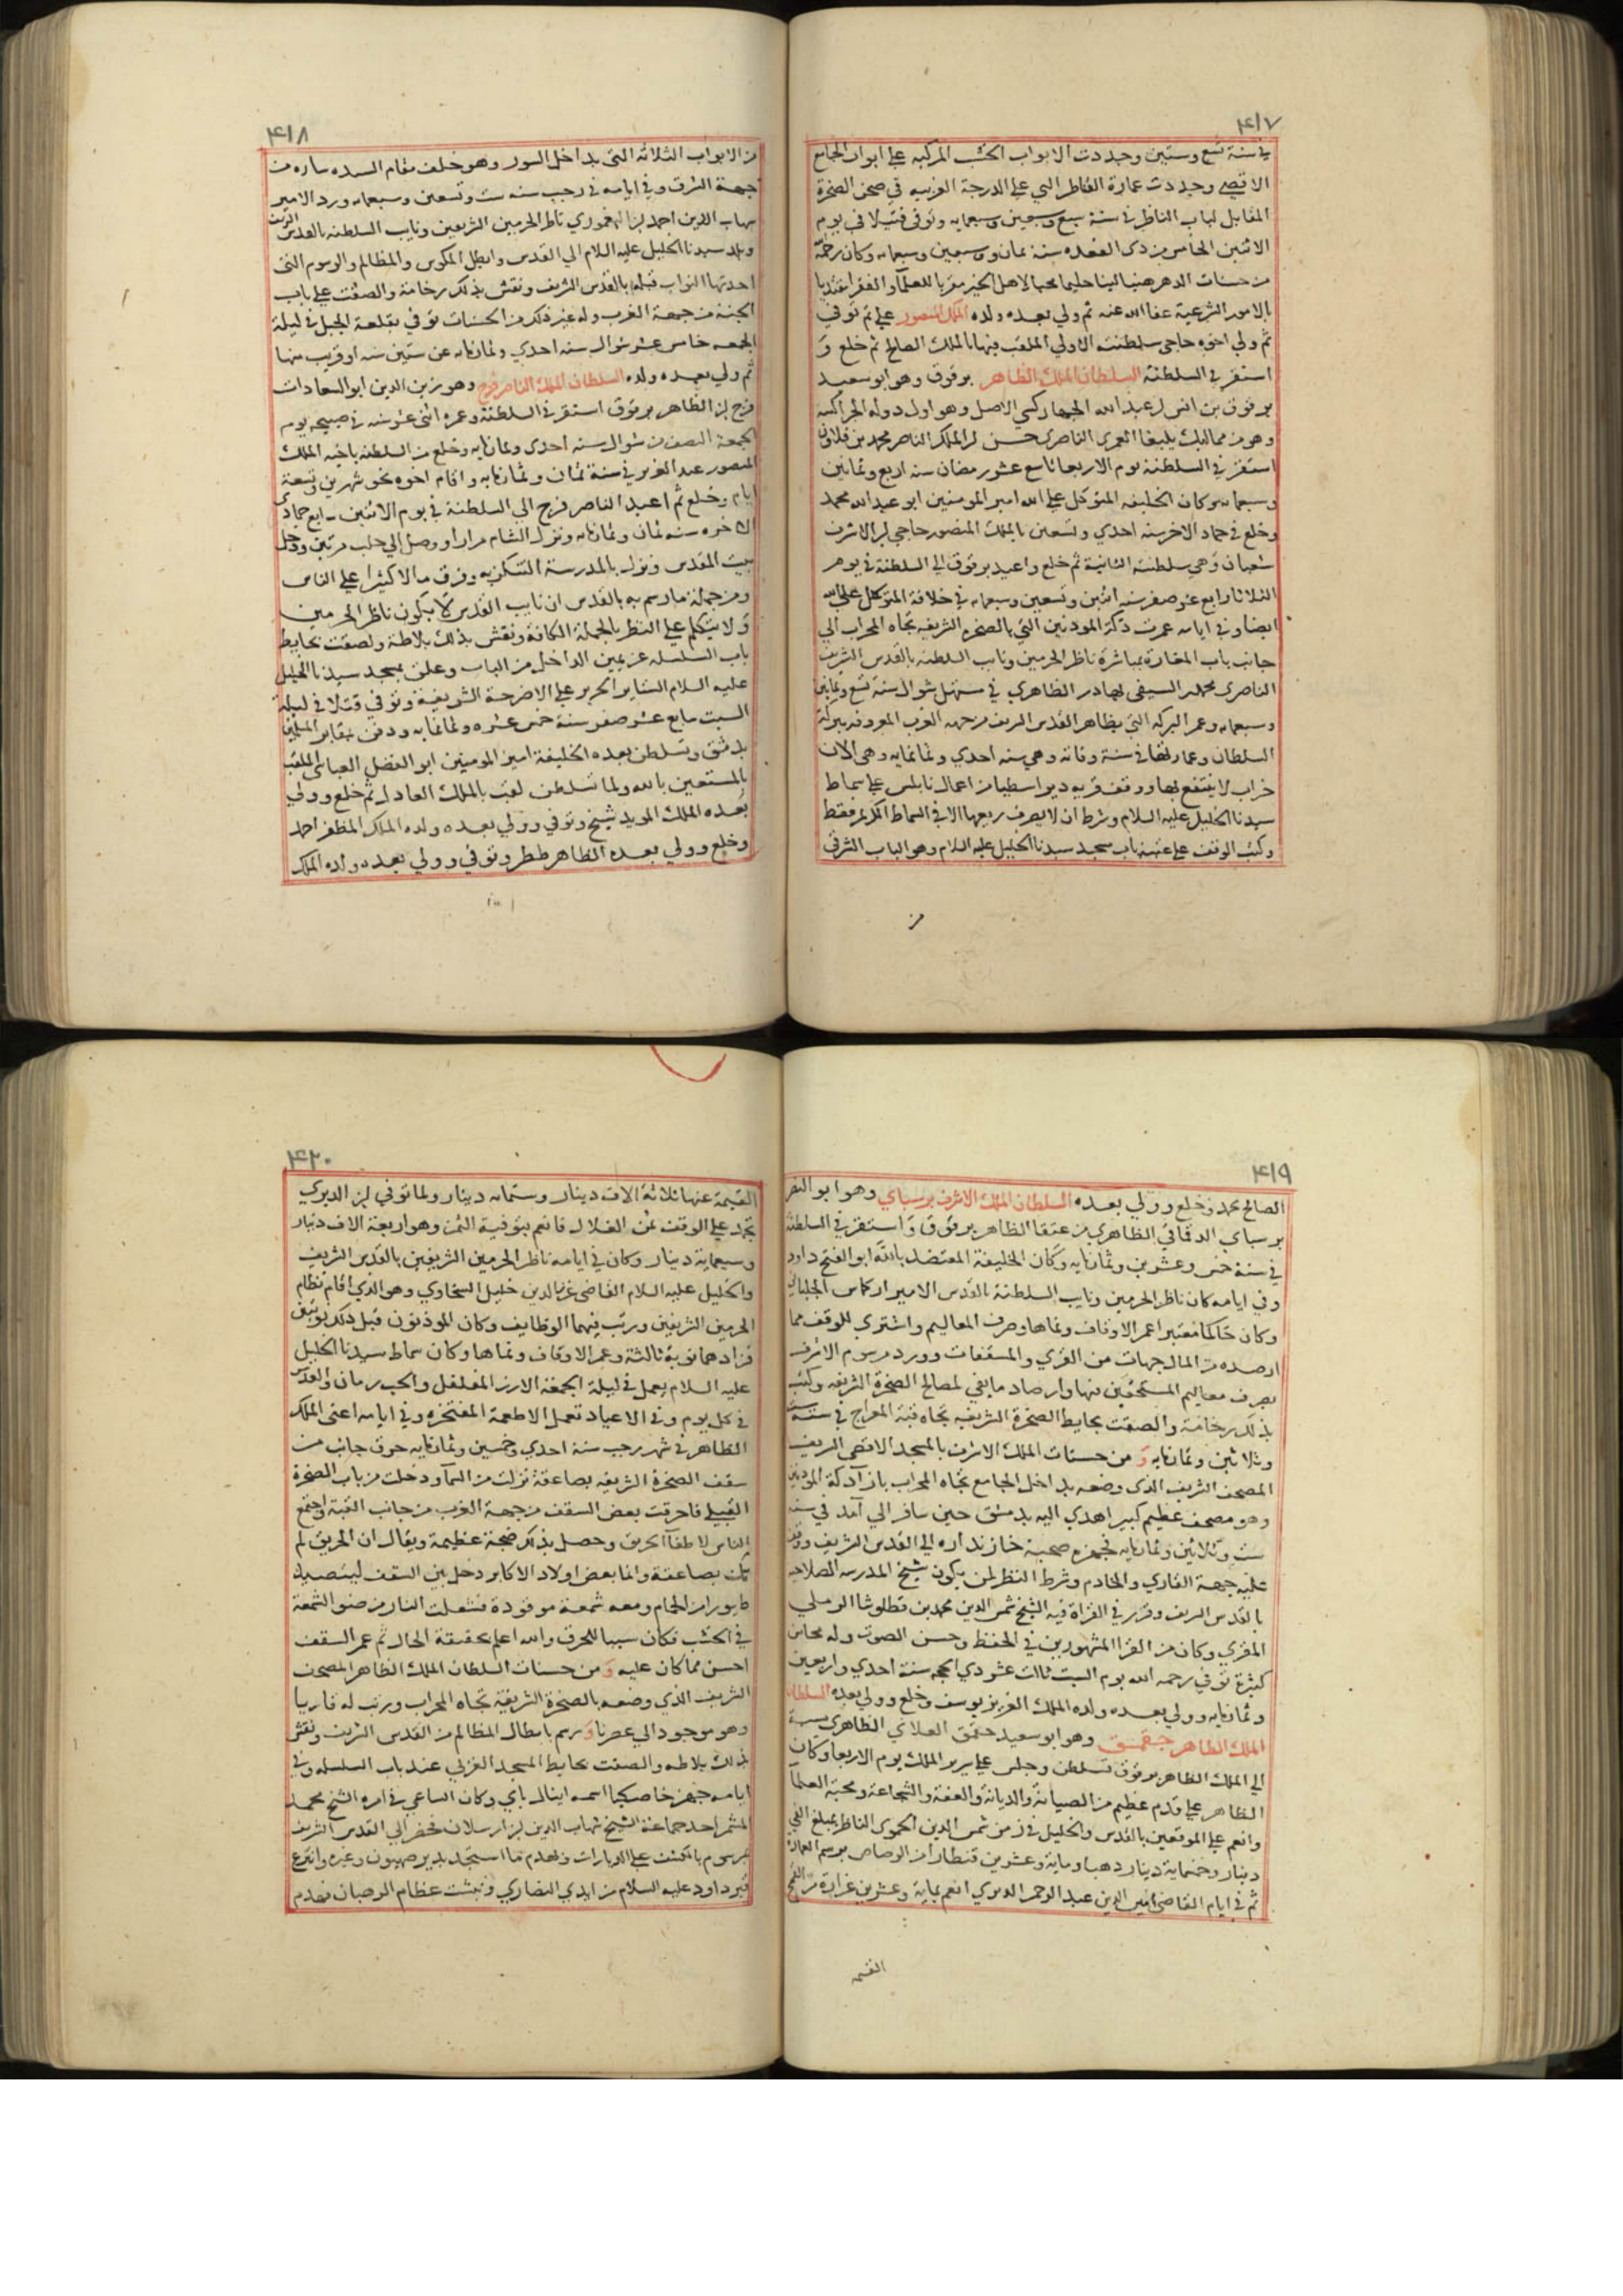 ٤١٧
في سنة تسع وستين وجددت الابواب الخشب المركبه علي ابواب الجامع
الاقصى وجددت عمارة القناطر التي علي الدرجة الغربيه في صحن الصخرة
المقابل لباب الناظر في سنة سبع وسبعين وسبعمايه وتوفي قتيلا في يوم
الاثنين الخامس من ذي القعده سنة ثمان وسبعين وسبعمايه وكان رحمه الله
من حسنات الدهر هينا لينا حليما محبا لاهل الخير مقربا للعلمآ والفقرا مقتديا
بالامور الشرعية عفا الله عنه ثم ولي بعده ولده الملك المنصور علي ثم توفي
ثم ولي اخوه حاجي سلطنته الاولي الملقب فيها بالملك الصالح ثم خلع و
استقر في السلطنة السلطان الملك الظاهر برقوق وهو ابو سعيد
برقوق بن انس بن عبد الله الجهاركسي الاصل وهو اول دولة الجراكسه
وهو من مماليك يلبغا العمري الناصري حسن بن الملك الناصر محمد بن قلاون
استقر في السلطنة يوم الاربعا تاسع عشر رمضان سنه اربع وثمانين
وسبعمايه وكان الخليفه المتوكل علي الله امير المومنين ابو عبد الله محمد
وخلع في جماد الاخر سنه احدي وتسعين بالملك المنصور حاجي بن الاشرف
شعبان وهي سلطنته الثانية ثم خلع واعيد برقوق الي السلطنة في يوم
الثلاثا رابع عشر صفر سنه اثنين وتسعين وسبعمايه في خلافة المتوكل علي الله
ايضا وفي ايامه عمرت دكة المودنين التي بالصخره الشريفه تجاه المحراب الي
جانب باب المغارة بمباشرة ناظر الحرمين ونايب السلطنه بالقدس الشريف
الناصري محمد بن السيفي بهادر الظاهري في مستهل شوال سنة تسع وثمانين
وسبعمايه وعمر البركه التي بظاهر القدس الشريف من جهة الغرب المعروفه ببركة
السلطان وعمارتها في سنة وفاته وهي سنه احدي وثمانمايه وهي الان
خراب لا ينتفع بها ووقف قريه دير اسطيا من اعمال نابلس علي سماط
سيدنا الخليل عليه السلام وشرط ان لا يصرف ريعها الا في السماط الكريم فقط
وكتب الوقف علي عتبة باب مسجد سيدنا الخليل عليه السلام وهو الباب الشرقي
من
٤١٨
من الابواب الثلاثه التي بداخل السور وهو خلف مقام السيده ساره من
جهة الشرق وفي ايامه في رجب سنه ست وتسعين وسبعمايه ورد الامير
شهاب الدين احمد بن اليغموري ناظر الحرمين الشريفين ونايب السلطنه بالقدس الشريف
وبلد سيدنا الخليل عليه السلام الي القدس وابطل المكوس والمظالم والرسوم التي
احدثها النواب قبله بالقدس الشريف ونقش بذلك رخامة والصقت علي باب
الجنة من جهة الغرب وله غير ذلك من الحسنات توفي بقلعة الجبل في ليلة
الجمعه خامس عشر شوال سنه احدي وثمانمايه عن ستين سنه او قريب منها
ثم ولي بعده ولده السلطان الملك الناصر فرج وهو زين الدين ابو السعادات
فرج بن الظاهر برقوق استقر في السلطنة وعمره اثني عشر سنه في صبيحه يوم
الجمعة النصف من شوال سنه احدي وثمانمايه وخلع من السلطنه باخيه الملك
المنصور عبد العزيز في سنة ثمان وثمانمايه واقام اخوه نحو شهرين وتسعة
ايام وخلع ثم اعيد الناصر فرج الي السلطنة في يوم الاثنين رابع جمادي
الاخره سنه ثمان وثمانمايه ونزل الشام مرارا ووصل الي حلب مرتين ودخل
بيت المقدس ونزل بالمدرسة التنكزيه وفرق مالا كثيرا علي الناس
ومن جملة ما رسم به بالقدس ان نايب القدس لا يكون ناظر الحرمين
ولا يتكلم علي النظر بالجملة الكافة ونقش بذلك بلاطة ولصقت بحايط
باب السلسله عن يمين الداخل من الباب وعلق بمسجد سيدنا الخليل
عليه السلام الستاير الحرير علي الاضرحة الشريفة وتوفي قتلا في ليلة
السبت سابع عشر صفر سنة خمس عشره وثمانمايه ودفن بمقابر المسلمين
بدمشق وتسلطن بعده الخليفة امير المومنين ابو الفضل العباسي الملقب
بالمستعين بالله ولما تسلطن لقب بالملك العادل ثم خلع وولي
بعده الملك المويد شيخ وتوفي وولي بعده ولده الملك المظفر احمد
وخلع وولي بعده الظاهر ططر وتوفي وولي بعده ولده الملك
٤١٩
الصالح محمد وخلع وولي بعده السلطان الملك الاشرف برسباي وهو ابو النصر
برسباي الدقماقي الظاهري من عتقا الظاهر برقوق واستقر في السلطنة
في سنة خمس وعشرين وثمانمايه وكان الخليفة المعتضد بالله ابو الفتح داود
وفي ايامه كان ناظر الحرمين ونايب السلطنة بالقدس الامير اركماس الجلباني
وكان حاكما معتبرا عمر الاوقاف ونماها وصرف المعاليم واشتري للوقف مما
ارصده من المال جهات من القري والمسقفات وورد مرسوم الاشرف
بصرف معاليم المستحقين منها وارصاد ما بقي لمصالح الصخرة الشريفه وكتب
بذلك رخامة والصقت بحايط الصخرة الشريفه تجاه قبة المعراج في سنة ست
وثلاثين وثمانمايه و من حسنات الملك الاشرف بالمسجد الاقصى الشريف
المصحف الشريف الذي وضعه بداخل الجامع تجاه المحراب بازآ دكة المودنين
وهو مصحف عظيم كبير اهدي اليه بدمشق حين سافر الي آمد في سنه
ست وثلاثين وثمانمايه فجهزه صحبة خازنداره الي القدس الشريف ووقف
عليه جهة القاري والخادم وشرط النظر لمن يكون شيخ المدرسه الصلاحيه
بالقدس الشريف وقرر في القراة فيه الشيخ شمس الدين محمد بن قطلوشا الرملي
المقري وكان من القرا المشهورين في الحفظ وحسن الصوت وله محاسن
كثيرة توفي رحمه الله يوم السبت ثالث عشر ذي الحجه سنة احدي واربعين
وثمانمايه وولي بعده ولده الملك العزيز يوسف وخلع وولي بعده السلطان
الملك الظاهر جقمق وهو ابو سعيد جقمق العلاي الظاهري نسبة
الي الملك الظاهر برقوق تسلطن وجلس علي سرير الملك يوم الاربعا وكان
الظاهر علي قدم عظيم من الصيانة والديانة والعفة والشجاعة ومحبة العلمآ
وانعم علي الموقعين بالقدس والخليل في زمن شمس الدين الحموي الناظر بمبلغ الفي
دينار وخمسماية دينار دهبا وماية وعشرين قنطارا من الرصاص برسم العمارة
ثم في ايام القاضي امين الدين عبد الرحمن الديري انعم بماية وعشرين غرارة من القمح
القيمه
٤٢٠
القيمة عنها ثلاثة الاف دينار وستمايه دينار ولما توفي ابن الديري
تجمد علي الوقف ثمن الغلال فانعم بتوفية الثمن وهو اربعة الاف دينار
وسبعماية دينار وكان في ايامه ناظر الحرمين الشريفين بالقدس الشريف
والخليل عليه السلام القاضي غرس الدين خليل السخاوي وهو الذي اقام نظام
الحرمين الشريفين ورتب فيهما الوظايف وكان الموذنون قبل ذلك نوبتين
فزادهما نوبة ثالثة وعمر الاوقاف ونماها وكان سماط سيدنا الخليل
عليه السلام يعمل في ليلة الجمعة الارز المفلفل والحب رمان والعدس
في كل يوم وفي الاعياد تعمل الاطعمة المفتخره وفي ايامه اعني الملك
الظاهر في شهر رجب سنة احدي وخمسين وثمانمايه حرق جانب من
سقف الصخرة الشريفه بصاعقة نزلت من السمآ ودخلت من باب الصخرة
القبلي فاحرقت بعض السقف من جهة الغرب من جانب القبة واجتمع
الناس لاطفآ الحريق وحصل بذلك ضجة عظيمة ويقال ان الحريق لم
يكن بصاعقة وانما بعض اولاد الاكابر دخل بين السقف ليتصيد
طيورا من الحمام ومعه شمعة موقودة فشعلت النار من ضو الشمعة
في الخشب فكان سببا للحرق والله اعلم بحقيقة الحال ثم عمر السقف
احسن مما كان عليه و من حسنات السلطان الملك الظاهر المصحف
الشريف الذي وضعه بالصخرة الشريفة تجاه المحراب ورتب له قاريا
وهو موجود الي عصرنا ورسم بابطال المظالم من القدس الشريف ونقش
بذلك بلاطه والصقت بحايط المسجد الغربي عند باب السلسله وفي
ايامه جهز خاصكيا اسمه اينال باي وكان الساعي في امره الشيخ محمد
المشمر احد جماعة الشيخ شهاب الدين بن ارسلان فحضر الي القدس الشريف
بمرسوم بالكشف علي الديارات وبهدم ما استجد بدير صهيون وغيره وانتزع
قبر داود عليه السلام من ايدي النصاري ونبشت عظام الرهبان فهدم